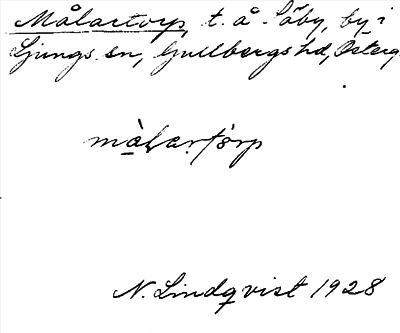 Målartorp, t. å Säby, by i
Ljungs sn, Gullbergs hd, Österg.
màlartòrp
N. Lindqvist 1928